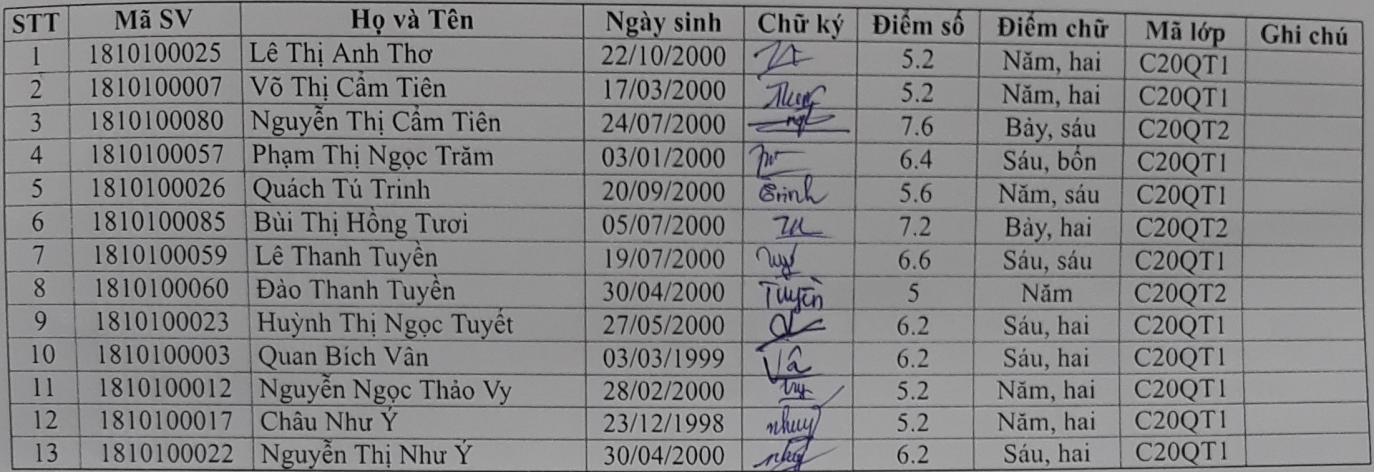 STT Mã SV Họ và Tên Ngày sinh Chữ ký Điểm số Điểm chữ Mã lớp Ghi chú
1 1810100025 Lê Thị Anh Thơ 22/10/2000 5.2 Năm, hai C20QT1
2 1810100007 Võ Thị Cẩm Tiên 17/03/2000 5.2 Năm, hai C20QT1
3 1810100080 Nguyễn Thị Cẩm Tiên 24/07/2000 7.6 Bảy, sáu C20QT2
4 1810100057 Phạm Thị Ngọc Trăm 03/01/2000 6.4 Sáu, bốn C20QT1
5 1810100026 Quách Tú Trinh 20/09/2000 Trinh 5.6 Năm, sáu C20QT1
6 1810100085 Bùi Thị Hồng Tươi 05/07/2000 7.2 Bảy, hai C20QT2
7 1810100059 Lê Thanh Tuyền 19/07/2000 6.6 Sáu, sáu C20QT1
8 1810100060 Đào Thanh Tuyền 30/04/2000 Tuyền 5 Năm C20QT2
9 1810100023 Huỳnh Thị Ngọc Tuyết 27/05/2000 6.2 Sáu, hai C20QT1
10 1810100003 Quan Bích Vân 03/03/1999 Vâ 6.2 Sáu, hai C20QT1
11 1810100012 Nguyễn Ngọc Thảo Vy 28/02/2000 5.2 Năm, hai C20QT1
12 1810100017 Châu Như Ý 23/12/1998 nhuy 5.2 Năm, hai C20QT1
13 1810100022 Nguyễn Thị Như Ý 30/04/2000 6.2 Sáu, hai C20QT1